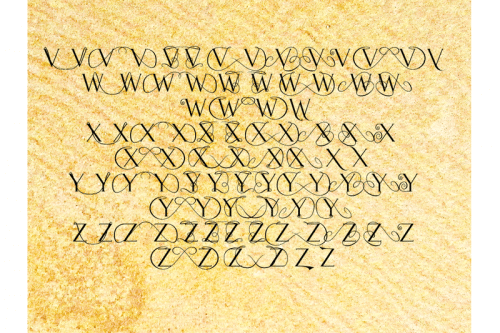 V V V V V V V V V V V V V V
W W W W W W W W W W W
W W W W
X X X X X X X X X X X
X X X X X X X X
Y Y Y Y Y Y Y Y Y Y Y Y Y
Y Y Y Y Y Y
Z Z Z Z Z Z Z Z Z Z Z Z Z
Z Z Z Z Z Z